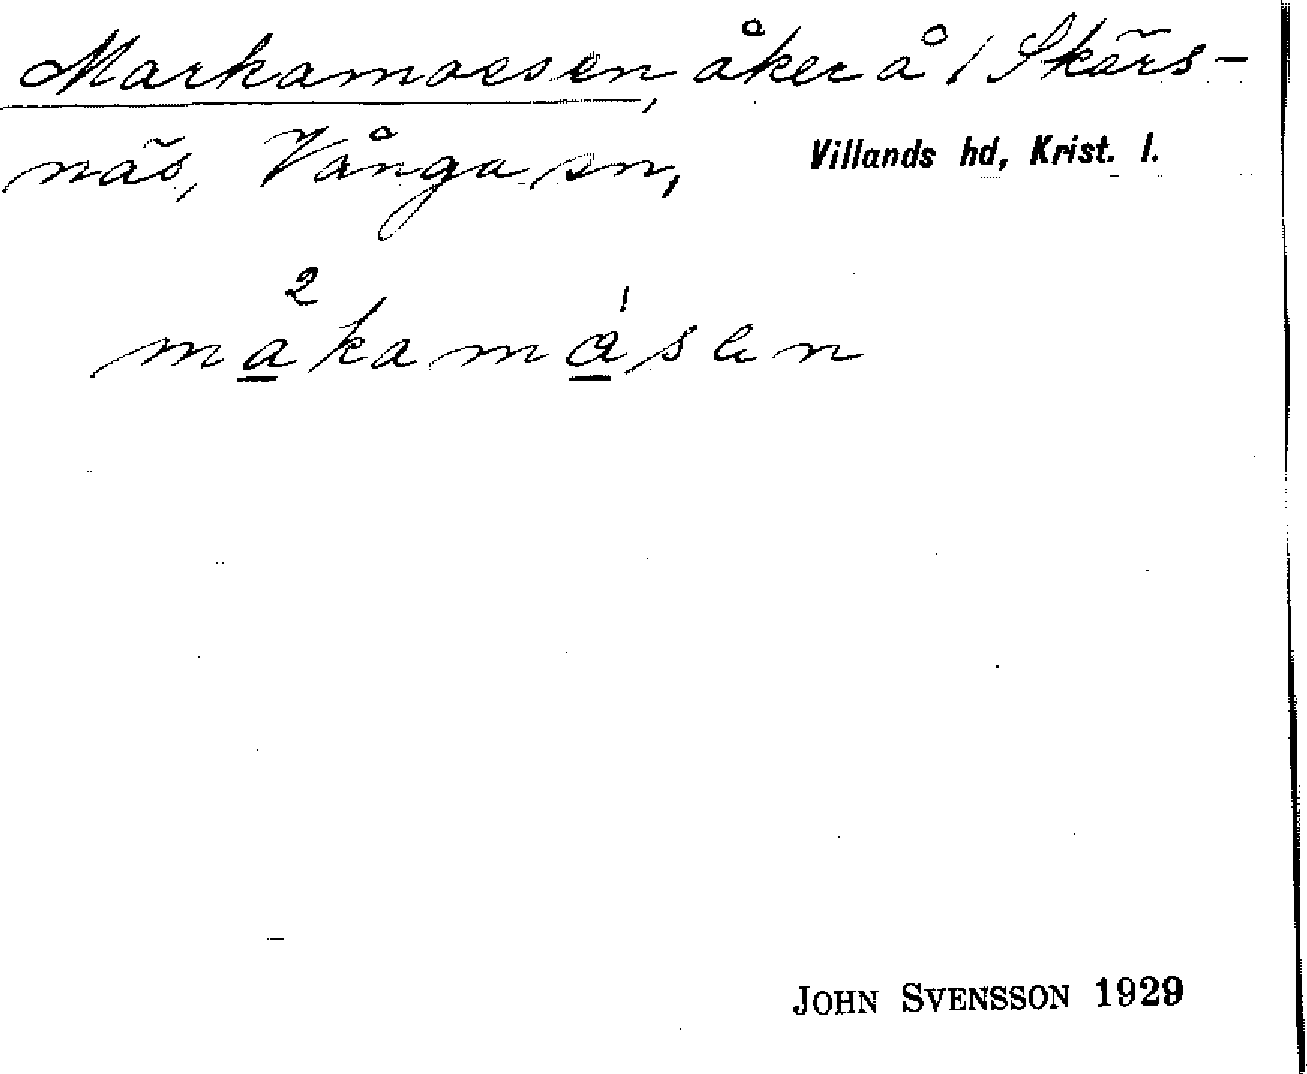 Markamossen, åker å 1 Skärs-
näs, Vånga sn, Villands hd, Krist. l.
JOHN SVENSSON 1929